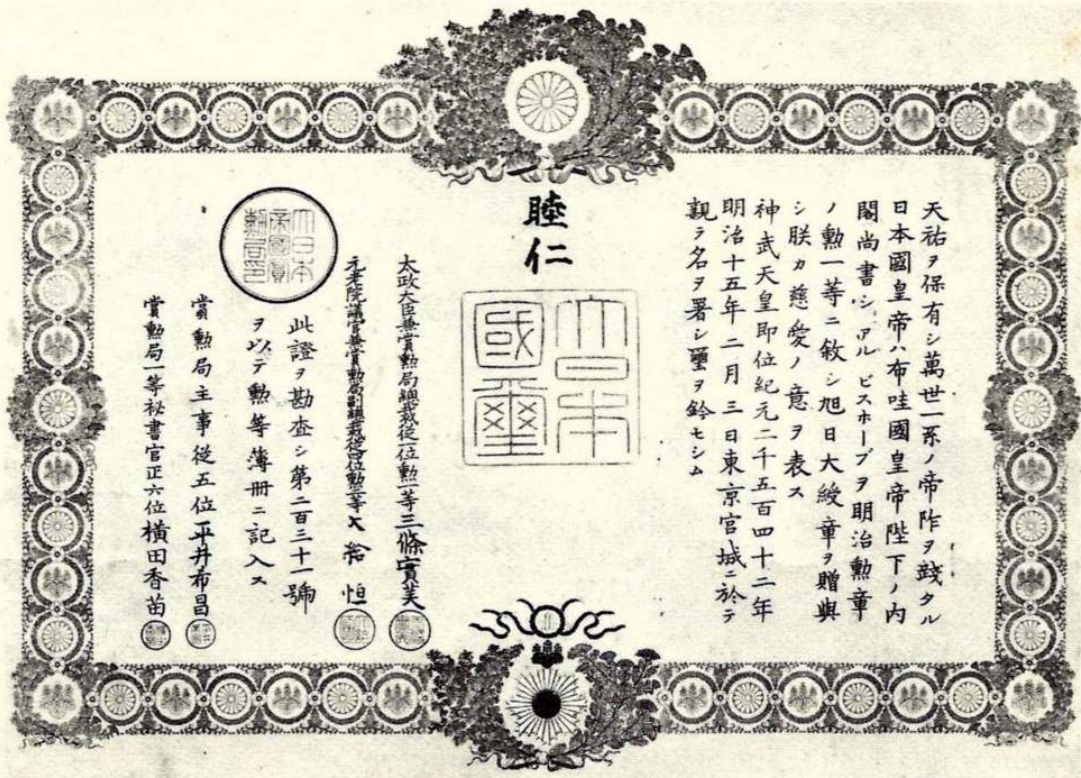 天祐ヲ保有シ萬世一系ノ帝阼ヲ踐タル
日本國皇帝ハ布哇國皇帝陛下ノ内
閣尚書シ、アル ビスホーブヲ明治勲章
ノ勲一等ニ敘シ旭日大綬章ヲ贈與
シ朕カ慈愛ノ意ヲ表ス
神武天皇即位紀元二千五百四十二年
明治十五年二月三日東京宮城ニ於テ
親ラ名ヲ署シ璽ヲ鈐セシム
睦仁
大日本
國璽
太政大臣兼賞勲局總裁從一位勲一等三條實美
元老院議官兼賞勲局副總裁從四位勲二等大給恒
大日本
帝國賞
勲局印
此證ヲ勘査シ第二百三十一號
ヲ以テ勲等簿册ニ記入ス
賞勲局主事從五位平井希昌
賞勲局一等秘書官正六位横田香苗